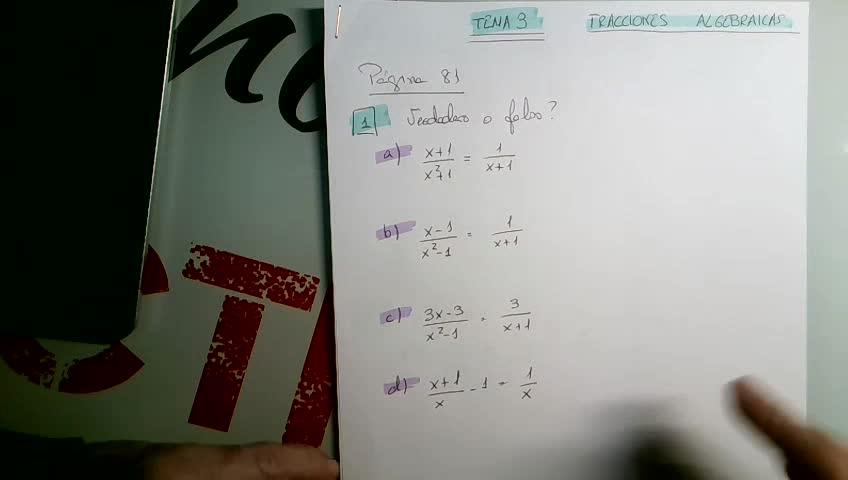 TEMA 3 FRACCIONES ALGEBRAICAS
Página 81
1 Verdadero o falso?
a) x+1/x²+1 = 1/x+1
b) x-1/x²-1 = 1/x+1
c) 3x-3/x²-1 = 3/x+1
d) x+1/x - 1 = 1/x